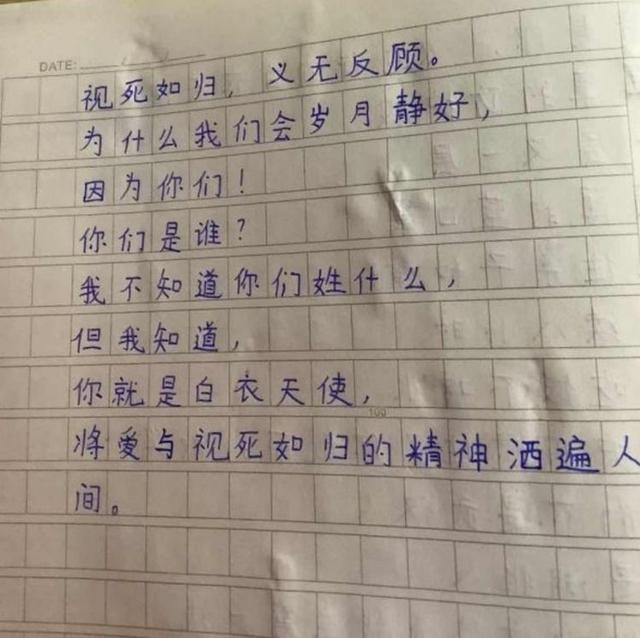 DATE:
视死如归，义无反顾。
为什么我们会岁月静好，
因为你们！
你们是谁？
我不知道你们姓什么，
但我知道，
你就是白衣天使，
100
将爱与视死如归的精神洒遍人
间。